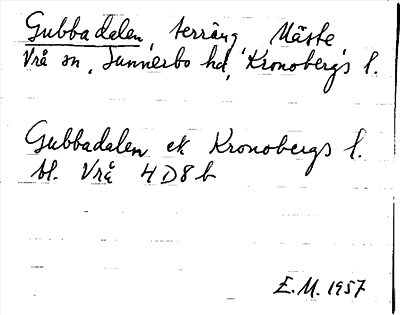 Gubbadelen, terräng Mäste
Vrå sn, Sunnerbo hd, Kronobergs l.
Gubbadalen ek Kronobergs l.
bl. Vrå 4D8b
E.M. 1957